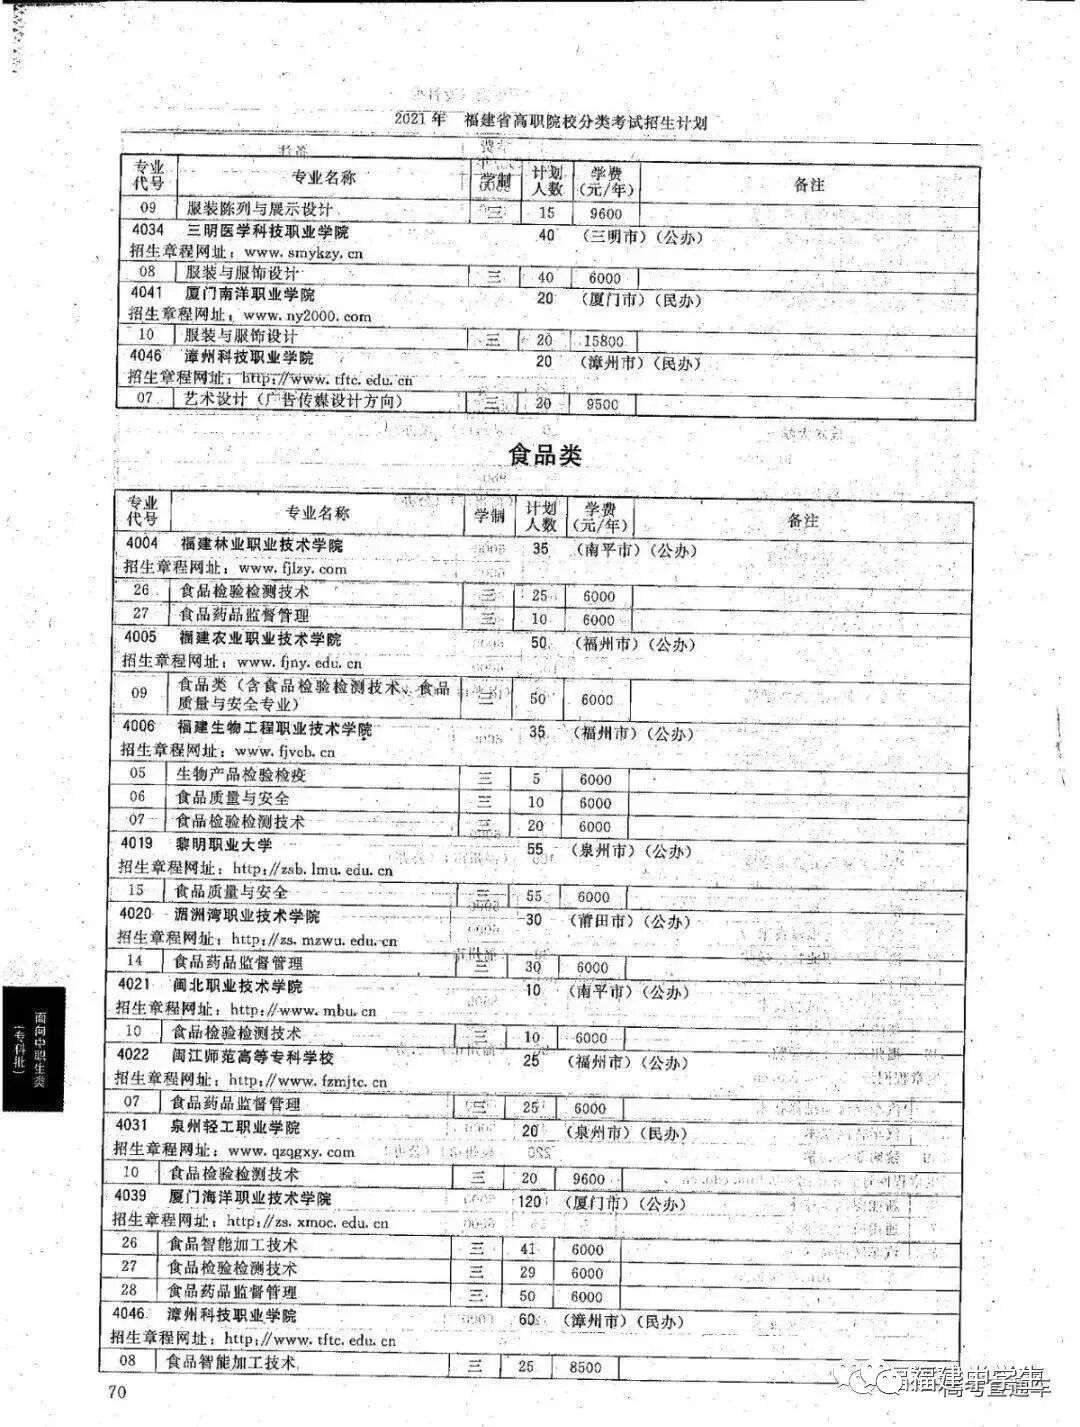 2021年 福建省高职院校分类考试招生计划
专业代号 专业名称 学制 计划人数 学费(元/年) 备注
09 服装陈列与展示设计 三 15 9600
4034 三明医学科技职业学院 40 (三明市)(公办)
招生章程网址：www.smykzy.cn
08 服装与服饰设计 三 40 6000
4041 厦门南洋职业学院 20 (厦门市)(民办)
招生章程网址：www.ny2000.com
10 服装与服饰设计 三 20 15800
4046 漳州科技职业学院 20 (漳州市)(民办)
招生章程网址：http://www.tftc.edu.cn
07 艺术设计（广告传媒设计方向） 三 20 9500
食品类
专业代号 专业名称 学制 计划人数 学费(元/年) 备注
4004 福建林业职业技术学院 35 (南平市)(公办)
招生章程网址：www.fjlzy.com
26 食品检验检测技术 三 25 6000
27 食品药品监督管理 三 10 6000
4005 福建农业职业技术学院 50 (福州市)(公办)
招生章程网址：www.fjny.edu.cn
09 食品类（含食品检验检测技术、食品质量与安全专业） 三 50 6000
4006 福建生物工程职业技术学院 35 (福州市)(公办)
招生章程网址：www.fjvcb.cn
05 生物产品检验检疫 三 5 6000
06 食品质量与安全 三 10 6000
07 食品检验检测技术 三 20 6000
4019 黎明职业大学 55 (泉州市)(公办)
招生章程网址：http://zsb.lmu.edu.cn
15 食品质量与安全 三 55 6000
4020 湄洲湾职业技术学院 30 (莆田市)(公办)
招生章程网址：http://zs.mzwu.edu.cn
14 食品药品监督管理 三 30 6000
4021 闽北职业技术学院 10 (南平市)(公办)
招生章程网址：http://www.mbu.cn
10 食品检验检测技术 三 10 6000
4022 闽江师范高等专科学校 25 (福州市)(公办)
招生章程网址：http://www.fzmjtc.cn
07 食品药品监督管理 三 25 6000
4031 泉州轻工职业学院 20 (泉州市)(民办)
招生章程网址：www.qzqgxy.com
10 食品检验检测技术 三 20 9600
4039 厦门海洋职业技术学院 120 (厦门市)(公办)
招生章程网址：http://zs.xmoc.edu.cn
26 食品智能加工技术 三 41 6000
27 食品检验检测技术 三 29 6000
28 食品药品监督管理 三 50 6000
4046 漳州科技职业学院 60 (漳州市)(民办)
招生章程网址：http://www.tftc.edu.cn
08 食品智能加工技术 三 25 8500
70
面向中职生类
(专科批)